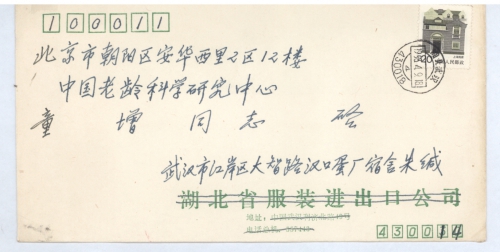 100011
北京市朝阳区安华西里2区12楼
中国老龄科学研究中心
童增同志 
武汉市江岸区大智路汉口蛋厂宿舍朱缄
湖北省服装进出口公司
地址:
430014